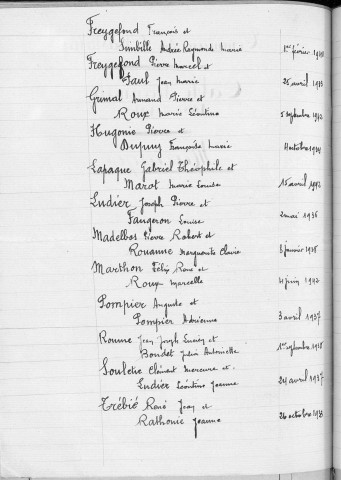 Freygefond François et
Simbille Andrée Raymonde Marie 1er février
Freygefond Pierre Marcel et
Faul Jean Marie 25 avril
Grimal Armand Pierre et
Roux Marie Léontine 5 septembre
Hugonie Pierre et
Dupuy Françoise Marie 11 octobre 1934
Lapaque Gabriel Théophile et
Marot Marie Louise 15 avril 1942
Ludier Joseph Pierre et
Faugeron Louise 2 mai 1936
Madelbos Pierre Robert et
Rouanne Marguerite Claire 8 janvier
Marthon Félix René et
Roux Marcelle 4 juin
Pompier Auguste et
Pompier Adrienne 3 avril 1937
Roume Jean Joseph Lucien et
Bondet Julia Antoinette 1er septembre
Souletie Clément Mercure et
Ludier Léontine Jeanne 24 avril 1937
Trébié René Jean et
Rathonie Jeanne 26 octobre